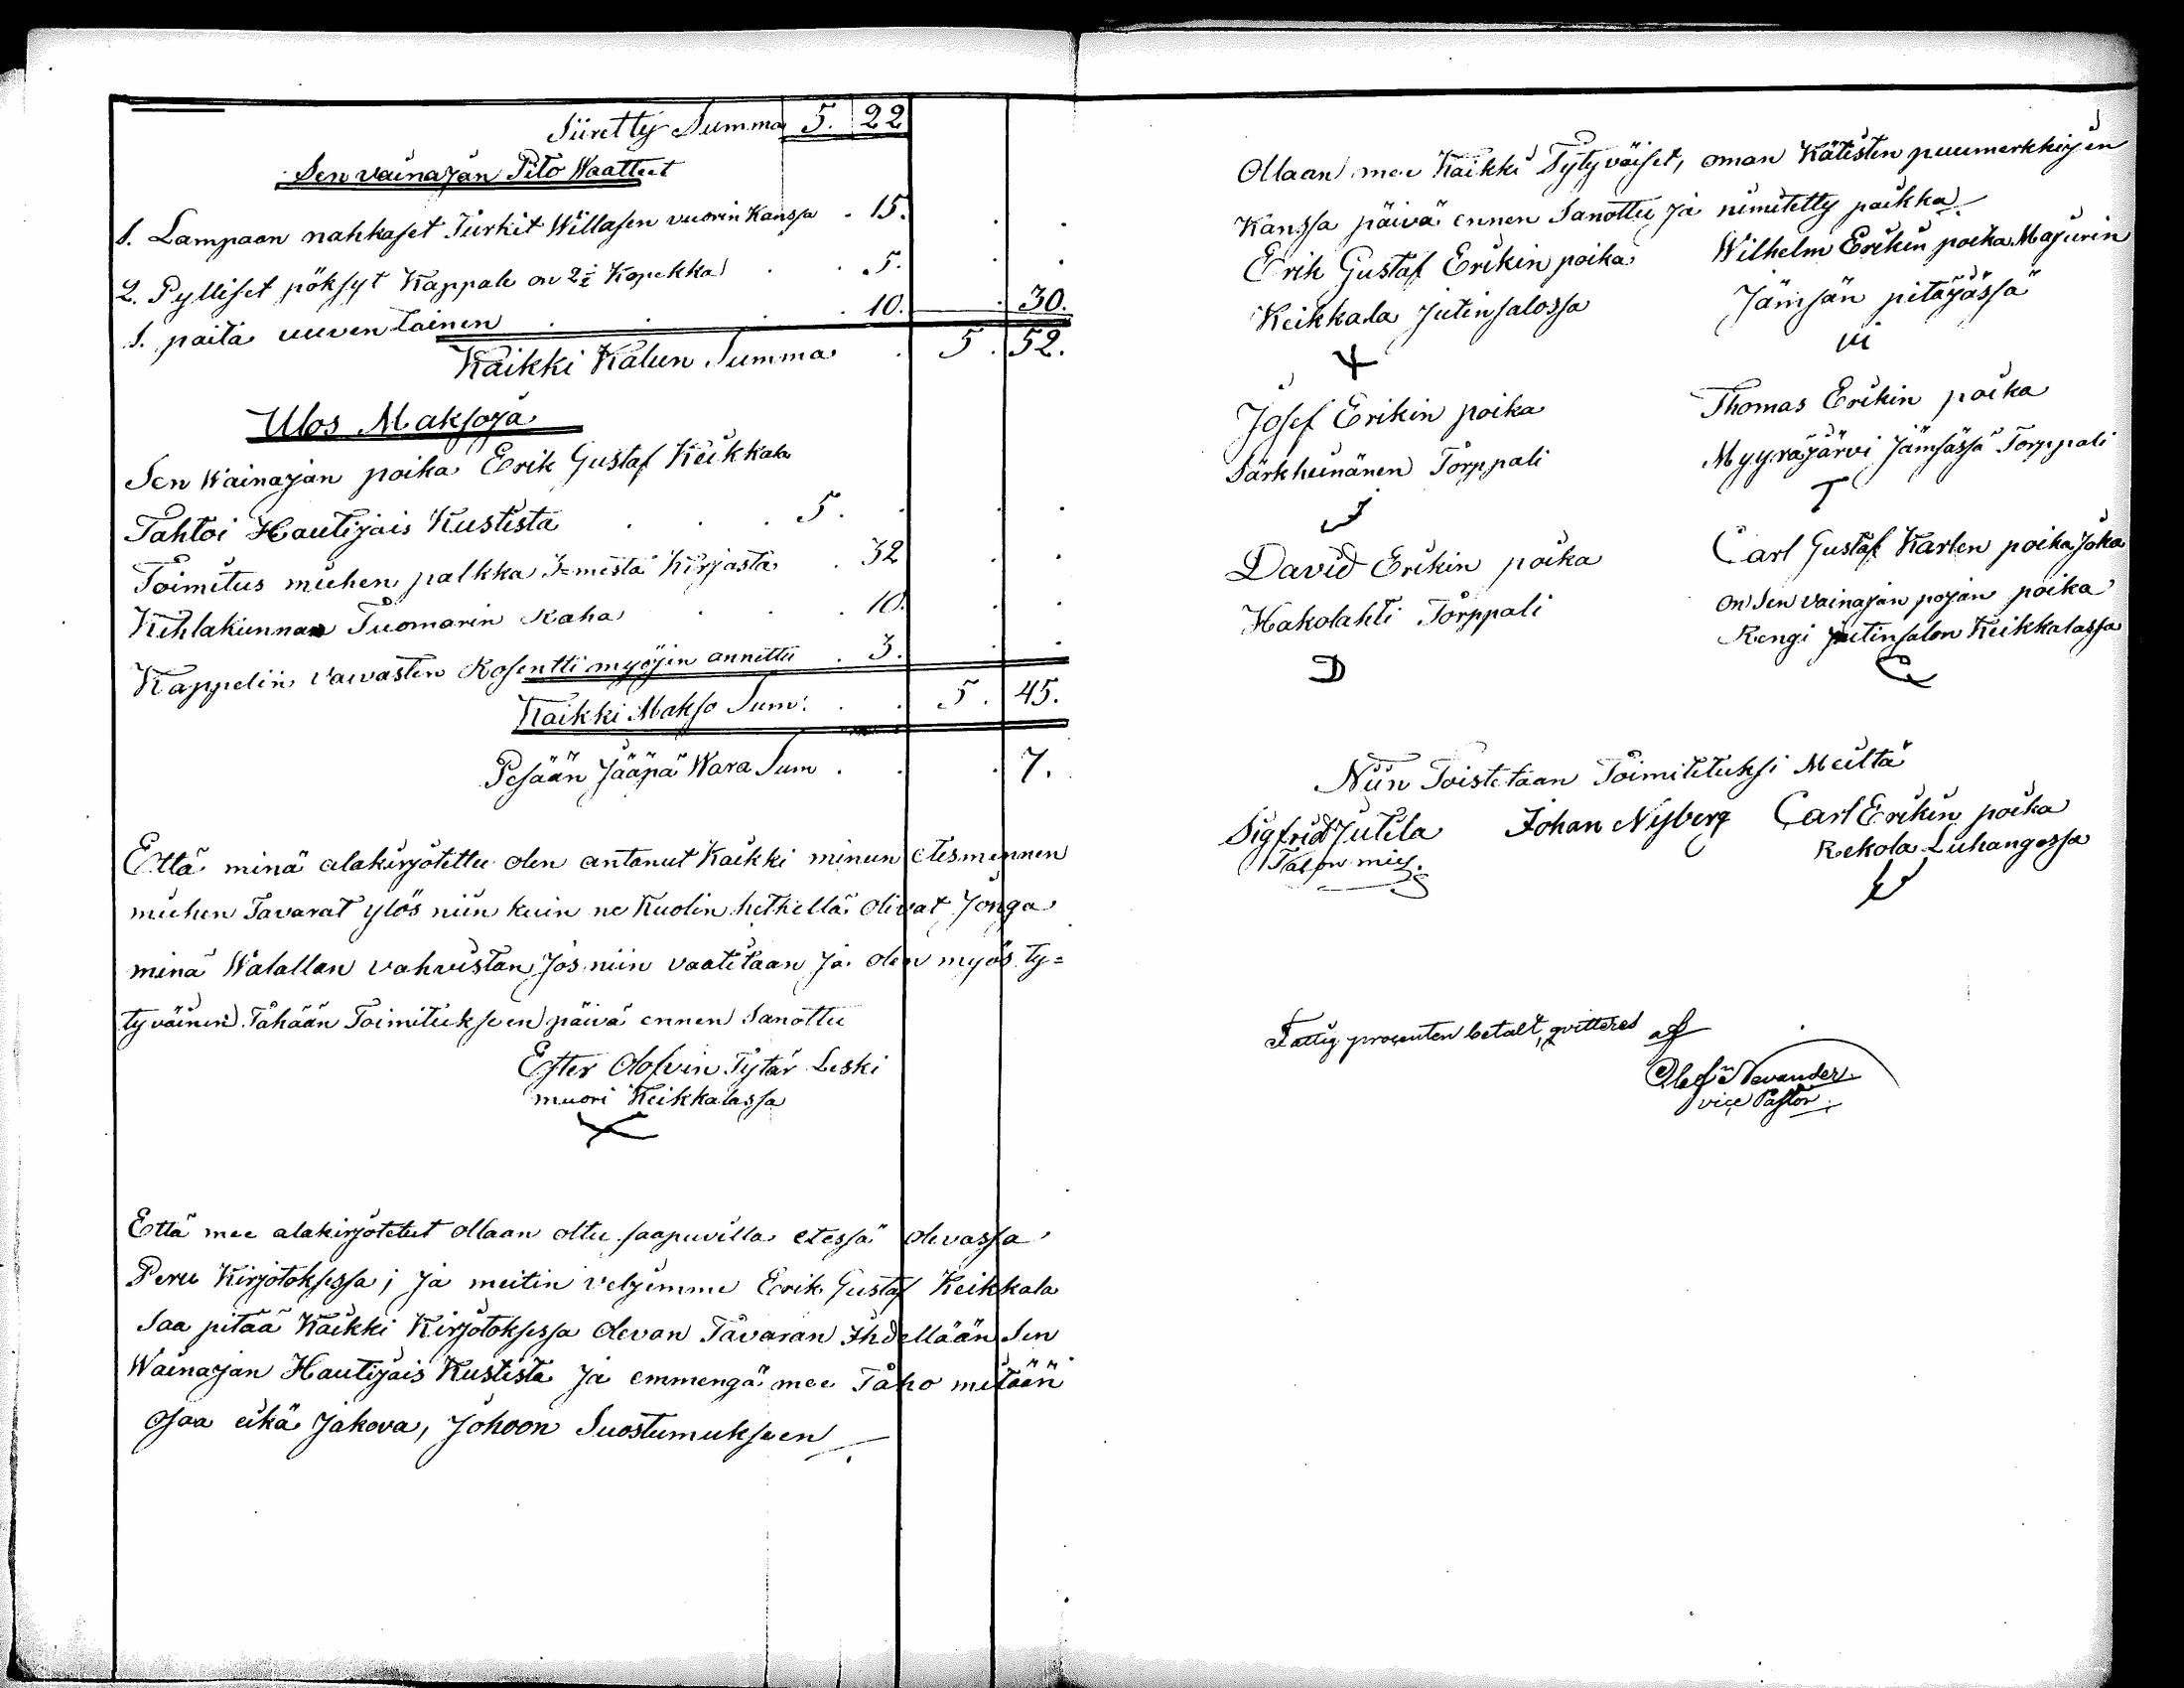 Siiretty Summa 5. 22
Sen vainajan Pito Waatteet
1. Lampaan nahkaset Turkit Willasen vuorin Kanssa . 15. . .
2. Pylliset pöksyt Kappale on 2½ Kopekka . . 5. . .
1. paita uuven tainen . . . . 10. . 30.
Kaikki Kalun Summa . 5. 52.
Ulos Maksoja
Sen Wainajan poika Erik Gustaf Keikkala
Tahtoi Hautijais Kustista . . . 5. . . .
Toimitus miehen palkka 3=mesta Kirjasta . 32 . .
Kihlakunnan Tuomarin Raha . . . 10. . .
Kappelin vaivasten Rosentti myöjin annettu . 3. . .
Kaikki Makso Sum: . . 5. 45.
Pesään Jääpä Wara Sum . . . 7.
Että minä alakirjotettu olen antanut Kaikki minun etesmennen
miehen Tavarat ylös niin kuin ne Kuolin hetkellä olivat Jonga
minä Walallan vahvistan Jos niin vaatitaan Ja olen myös ty=
tyväinen Tähään Toimitukseen päivä ennen Sanottu
Ester Olofvin Tytär Leski
muori Keikkalassa
Että mee alakirjotetut ollaan oltu saapuvilla etessä olevassa
Peru Kirjotoksessa; Ja meitin veljemme Erik Gustaf Keikkala
Saa pitää Kaikki Kirjotoksessa olevan Tavaran Ihdellään Sen
Wainajan Hautijais Kustista Ja emmengä mee Taho mitään
osaa eikä Jakova, Johoon Suostumukseen
Ollaan mee Kaikki Tytyväiset, oman Kätisten puumerkkiyen
Kanssa päivä ennen Sanottu Ja nimitetty paikka
Erik Gustaf Erikin poika
Keikkala Jutinsalossa
Wilhelm Erikin poika Majurin
Jämsän pitäjässä
Josef Erikin poika
Särkheinänen Torppali
J
Thomas Erikin poika
Myyräjärvi Jämsässä Torppali
T
David Erikin poika
Hakolahti Torppali
D
Carl Gustaf Karlen poika Joka
on Sen Vainajan pojan poika
Rengi Jutinsalon Keikkalassa
C
Niin Toistetaan Toimitetuksi Meiltä
Sigfrid Jutila
Talon mies.
Johan Nyberg
Carl Erikin poika
Rekola Luhangossa
Fattig procenten betalt, qvitteras af
Olof Nevander.
vice Pastor.